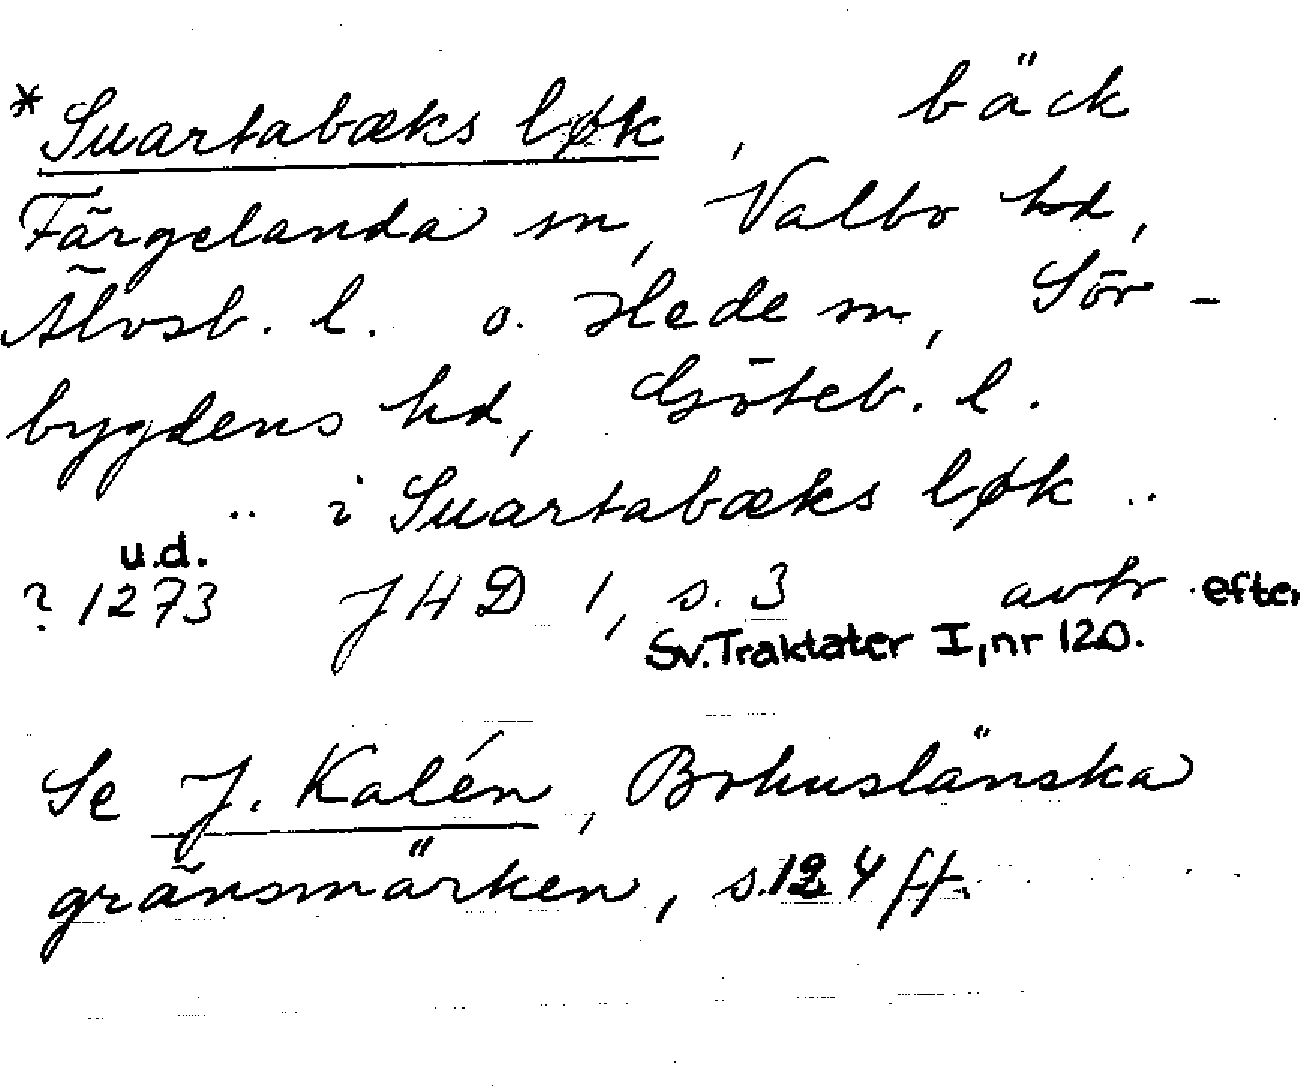 *Suartabæks løk, bäck
Färgelanda sn, Valbo hd,
Älvsb. l. o. Hede sn, Sör-
bygdens hd, Göteb. l.
.. i Suartabæks løk ..
u.d.
? 1273 JHD 1, s. 3 avtr efter
Sv. Traktater I, nr 120.
Se J. Kalén, Bohuslänska
gränsmärken, s. 124 ff.